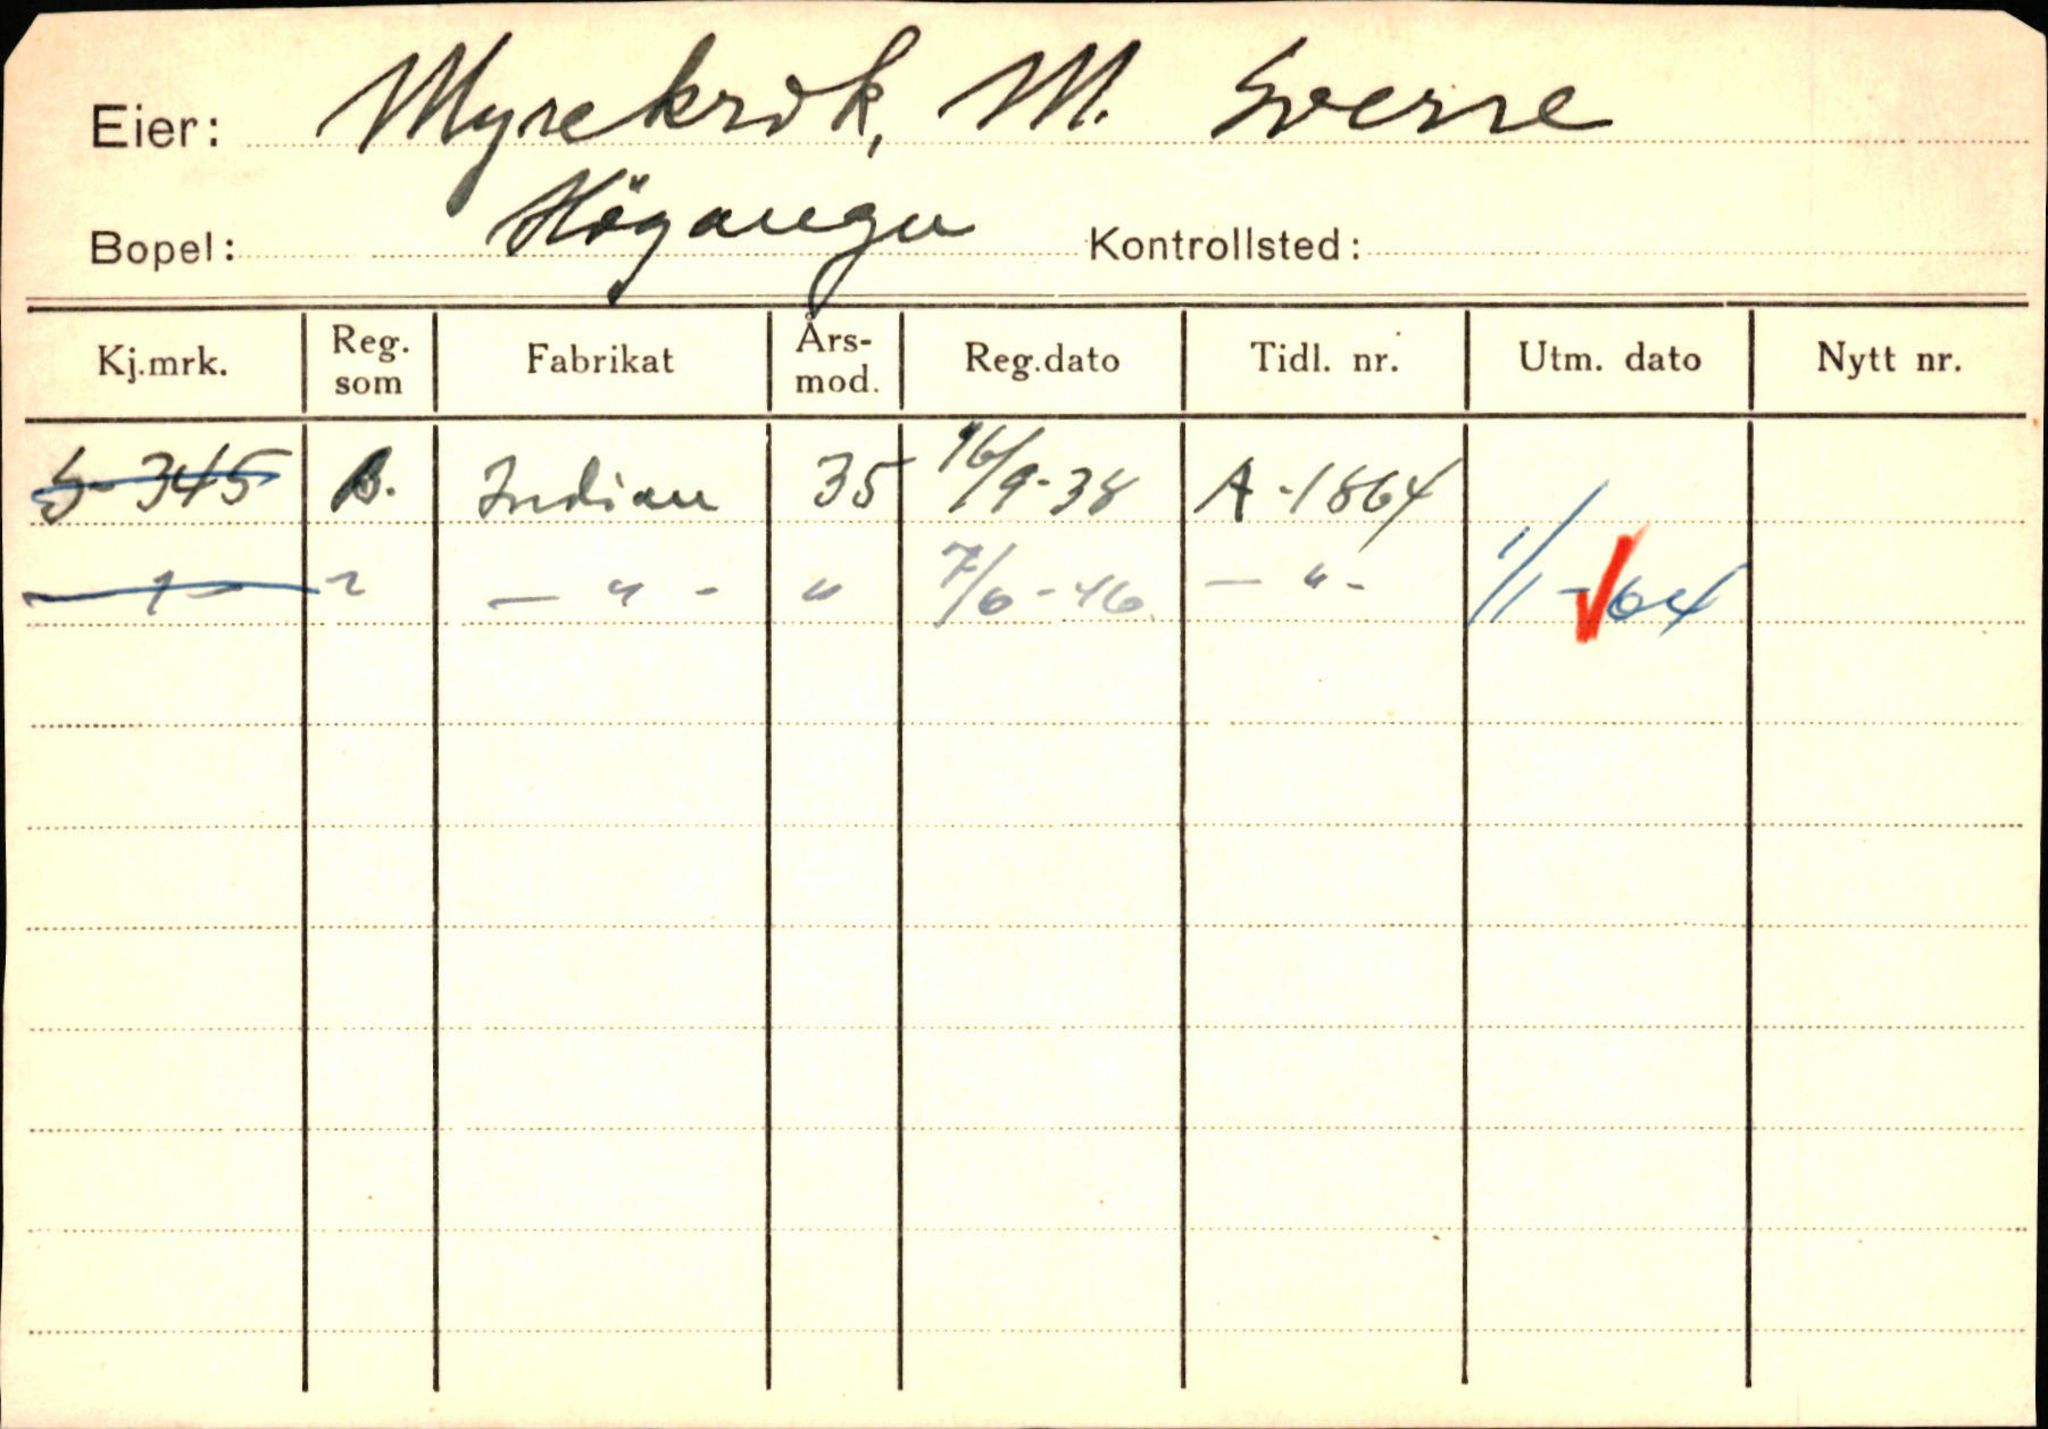 Eier: Myrekrok, M. Sverre
Bopel: Höyangu Kontrollsted:
Kj.mrk. Reg. som Fabrikat Års- mod. Reg.dato Tidl. nr. Utm. dato Nytt nr.
S-345 B. Indian 35 16/9-38 A-1864
— " - " 7/6-46 — " - 1/11-64